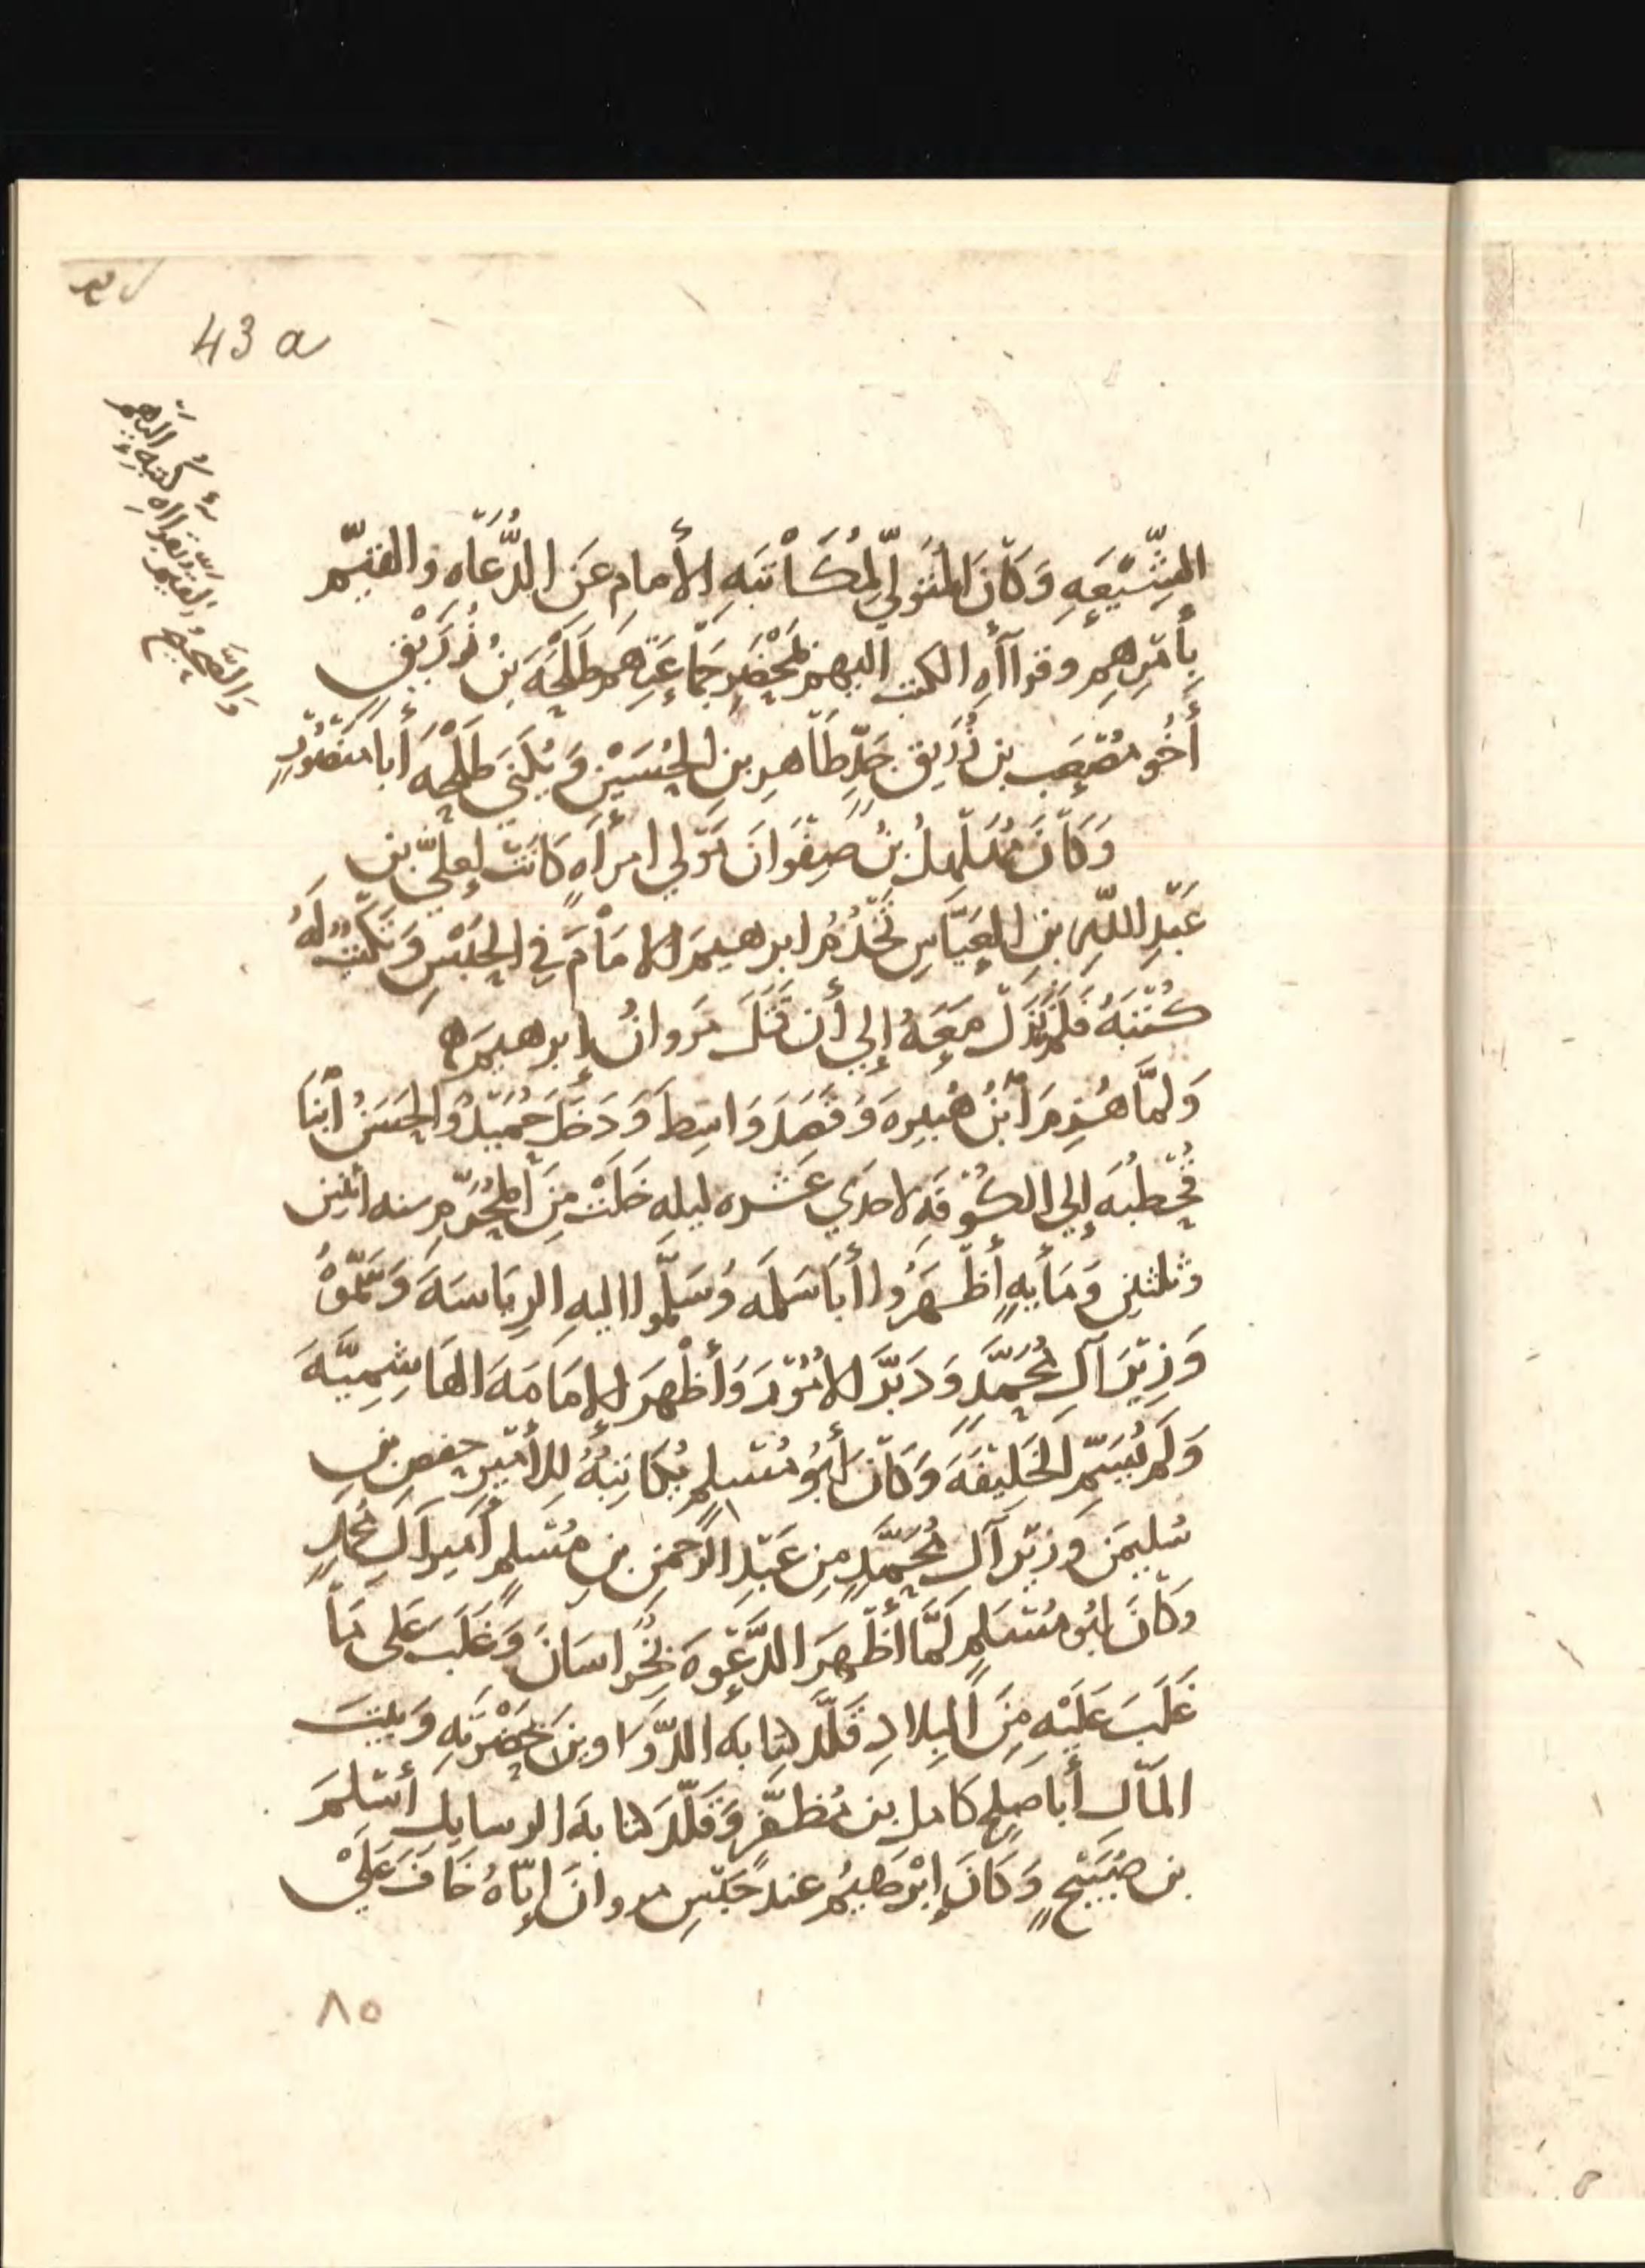 43 a
والصحيح والقيم بقراءه كتبه اليهم
الشِّيْعَهِ وَكَانَ المتَوَلّي لِمُكَاْتَبَهِ الأمامِ عَنِ الدُّعَاهِ والقيّم
بِأَمْرِهِم وقراأهِ الكتب اليهم بمَحْضَرِ جَمَاعَتِهم طَلْحَهَ بنُ زُرَيْقٍ
أَخُو مُصْعَب بن زُرَيق جَدِّ طَاهِر بنِ الحُسَيْنِ وَيُكْنَي طَلْحَهَ أَبا مَنصُوْرٍ
وَكَانَ مُهَلْهِلُ بْنُ صَفْوَانَ مَوْلي امرأَهٍ كَانَتْ لِعليّ بن
عَبْدِ اللّهِ بنِ العَبَّاسِ تَخْدُمُ ابرهيمَ الامَاْمَ في الحَبْسِ وَتَكْتُبُ لَهُ
كُتُبَهُ فَلَمْ يَزَلْ مَعَهُ إِلي أَن قَتَلَ مَروانُ إبرهيمَ ه
وَلمَّا هُزِمَ ابْنُ هُبيره وَقَصَدَ وَاسِطَ وَدَخَلَ حُمَيْدُ وَالحَسَنُ ابْنَا
قُحْطبَه إِلي الكُوْفَهِ لاحدي عَشره ليلهِ خَلَتْ مِنَ المُحَرَّمِ سنه اثنين
وثلثين وَمَأيهٍ أَظْهَرُوا أَبَا سَلمَه وَسَلَّمُوا اليهِ الرِيَاسَهَ وَسَمَّوْهُ
وَزِيْرَ آلِ مُحَمَّدٍ وَدَبَّرَ الاُمُوْرَ وَأَظْهَرَ الإمَامَهَ الهَاشِمِيَّهَ
وَلَمْ يُسَمِّ الخَلِيْفَهَ وَكَانَ أَبُوْ مُسْلِمٍ يُكَاتِبُهُ لِلأمِيْرِ حفصِ بنِ
سُليمنَ وَزِيْرِ آلِ مُحَمَّدٍ مِن عَبْدِ الرَّحمنِ بنِ مُسْلِمٍ أَمِيرِ آلِ مُحمدٍ
وَكَانَ ابُو مُسْلِمٍ لَمَّا أَظْهَرَ الدَّعْوَه بِخُراسَانَ وَغَلَبَ عَلى مَا
غَلَبَ عَلَيْهِ مِنَ البِلادِ قَلَّدَ كتابه الدَّوَاوينِ بحَضْرتِهِ وَبيتَ
المَالِ أَبا صلحٍ كامل بنَ مُظَفَّرٍ وَقَلَّدَ كتابهَ الرسايلِ أَسْلمَ
بن صُبَيْحٍ وَكَانَ إِبْرَهيمُ عند حَبْسِ مروانَ إيّاهُ خَافَ عَلَيْ
٨٥